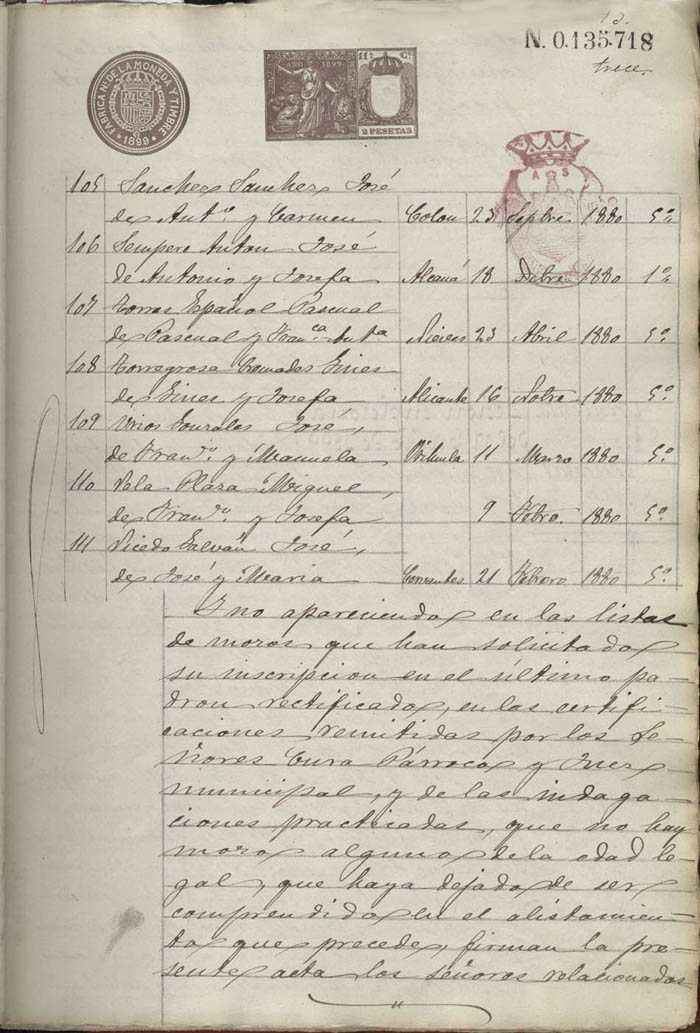 13.
N. 0.135.718
trece.
FABRICA Nal DE LA MONEDA Y TIMBRE
1899
AÑO 1899
11ª C.
2 PESETAS
A S
105 Sanchez Sanchez José
de Antº y Carmen Colon 23 Septre. 1880 5º
106 Sempere Antan José
de Antonio y Josefa Alcaná 18 Dbre 1880 1º
107 Torras Español Pascual
de Pascual y Franca Anta Nieves 23 Abril 1880 5º
108 Torregrosa Gines
de Gines y Josefa Alicante 16 Nobre 1880 5º
109 Urios Gonzales José,
de Frando. y Manuela Orihuela 11 Marzo 1880 5º
110 Vela Plaza Miguel,
de Frando. y Josefa 9 Febro. 1880 5º
111 Vicedo Galván José,
de José y Maria Cervantes 21 Febrero 1880 5º
Y no apareciendo en las listas
de mozos que han solicitado
su inscripcion en el último pa-
dron rectificado, en las certifi-
caciones remitidas por los Se-
ñores Cura Párroco y Juez
municipal, y de las indaga-
ciones practicadas, que no hay
mozo alguno de la edad le-
gal, que haya dejado de ser
comprendido en el alistamien-
to que precede, firman la pre-
sente acta los señores relacionados